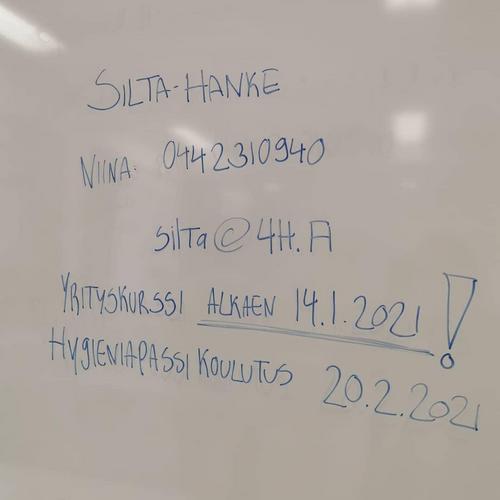 SILTA-HANKE
NIINA: 0442310940
silta@4H.FI
YRITYSKURSSI ALKAEN 14.1.2021!
HYGIENIAPASSI KOULUTUS 20.2.2021